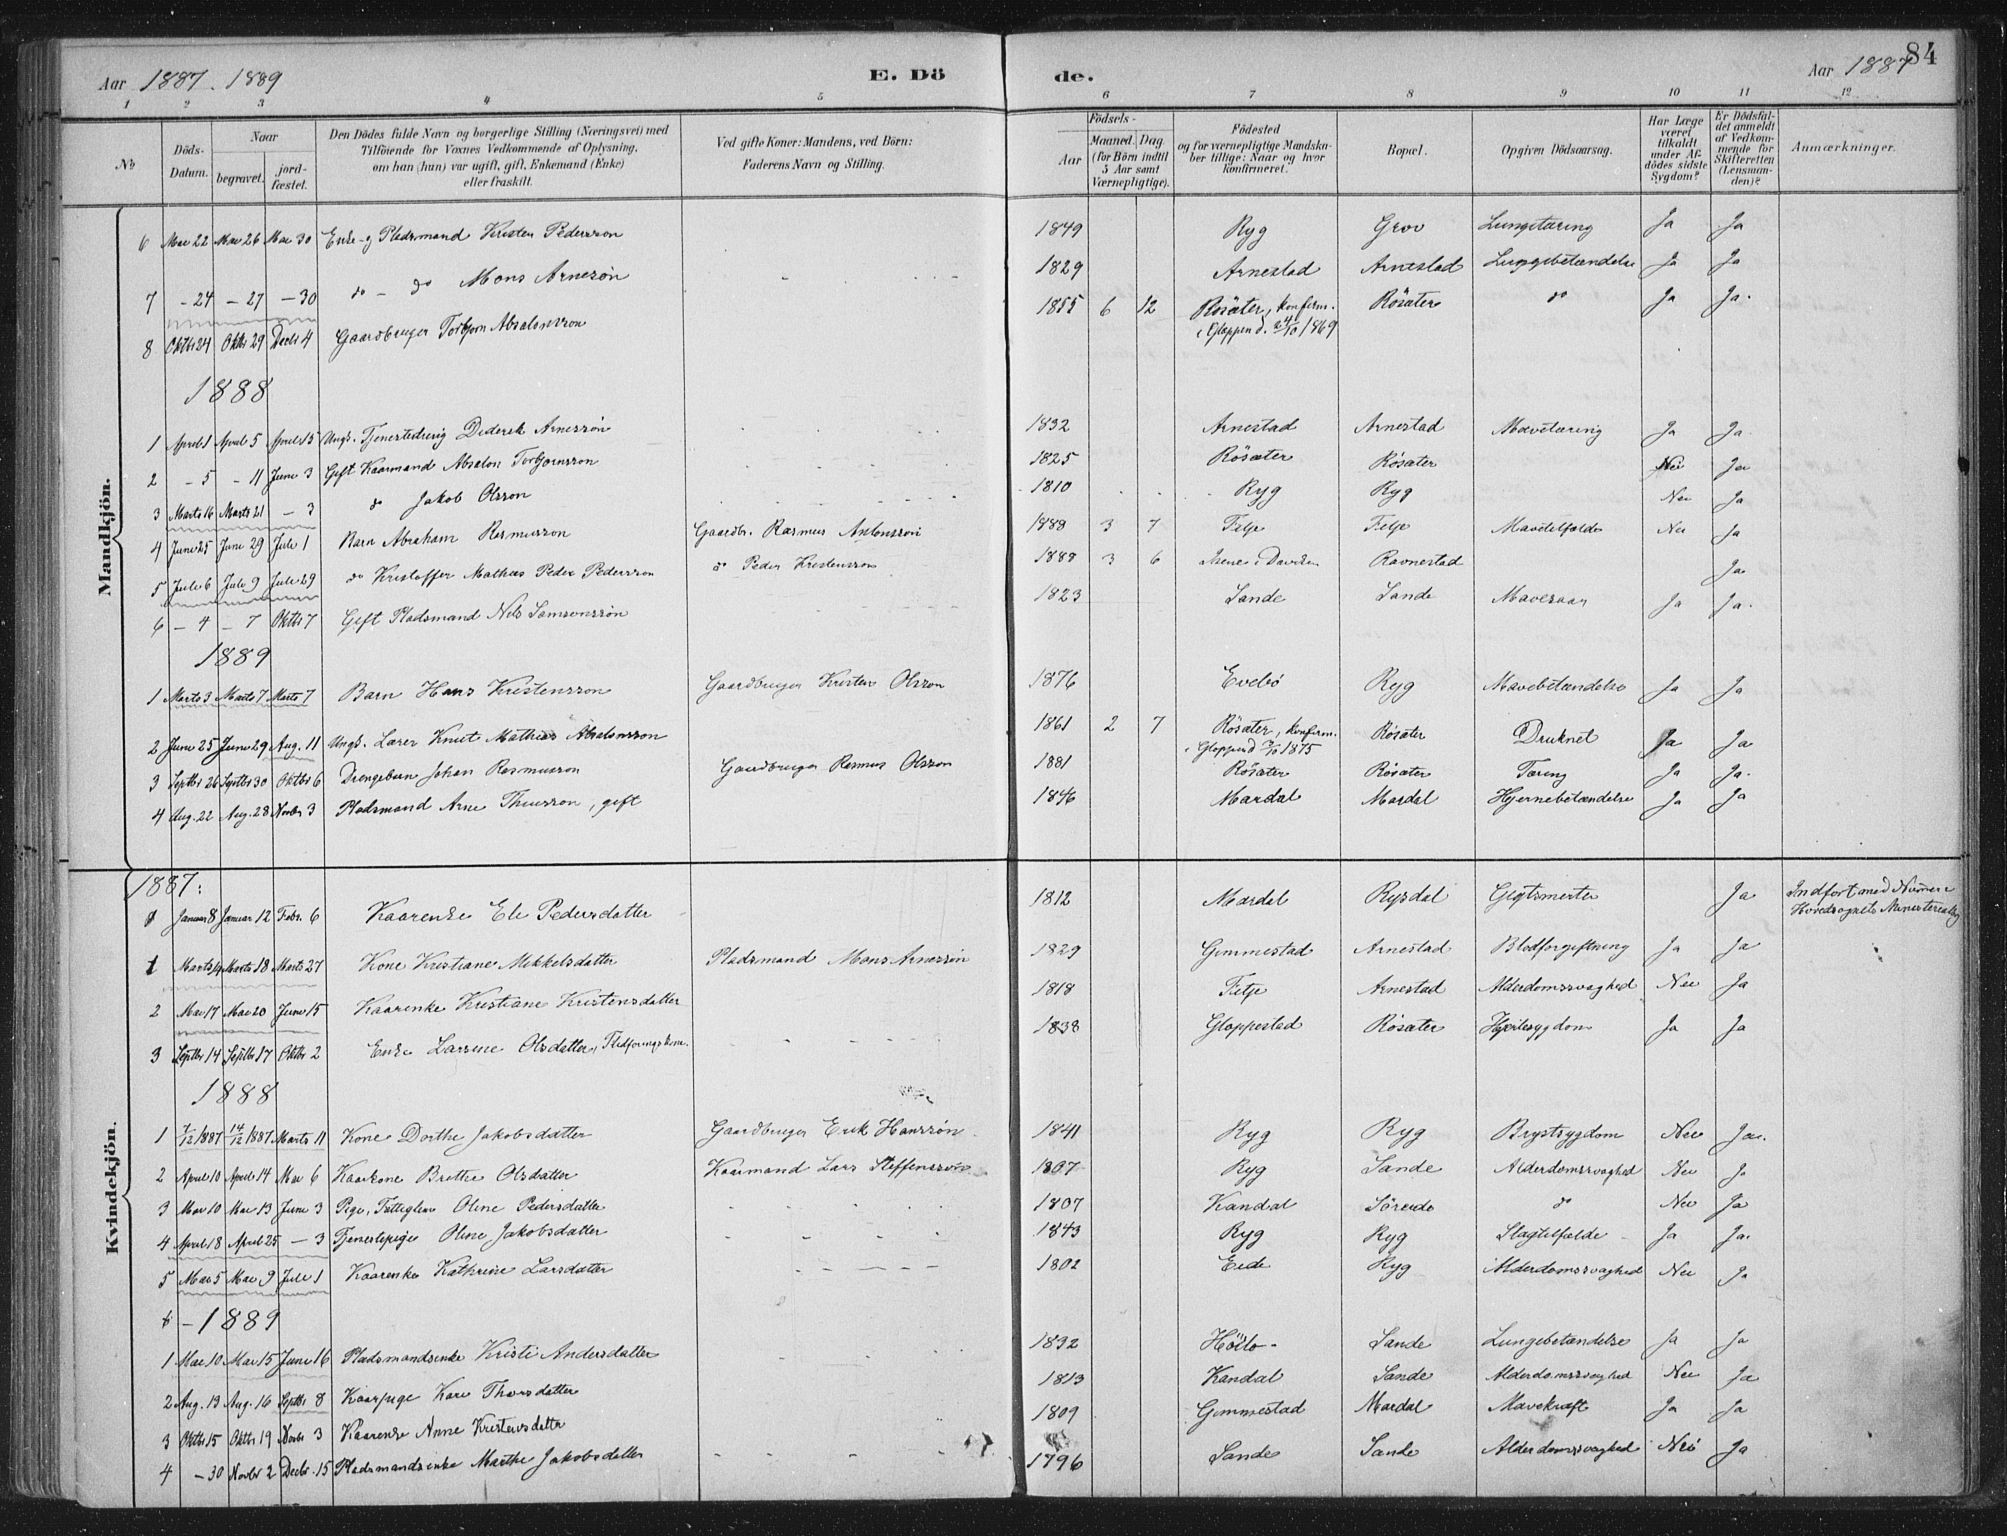 Aar 1887-1889 E. Dö de. Aar 1887 84
1 2 3 4 5 6 7 8 9 10 11 12
No Döds-Datum. Naar begravet. jord-fæstet. Den Dödes fulde Navn og borgerlige Stilling (Næringsvei) med Tilföiende for Voxnes Vedkommende af Oplysning, om han (hun) var ugift, gift, Enkemand (Enke) eller fraskilt. Ved gifte Koner: Mandens, ved Börn: Faderens Navn og Stilling. Födsels- Aar Maaned. Dag. (for Börn indtil 5 Aar samt Værnepligtige). Födested og for værnepligtige Mandskaber tillige: Naar og hvor konfirmeret. Bopæl. Opgiven Dödsaarsag. Har Læge været tilkaldt under Afdödes sidste Sygdom? Er Dödsfaldet anmeldt af Vedkommende for Skifteretten (Lensmanden)? Anmærkninger.
Mandkjön.
6 Mai 22 Mai 26 Mai 30 Enke- og Pladsmand Kristen Pederssön 1849 Ryg Grov Lungetæring Ja Ja
7 - 24 - 27 - 30 do - do Mons Arnesön 1829 Arnestad Arnestad Lungebetændelse Ja Ja
8 Oktbr 24 Oktbr 29 Decbr 4 Gaardbruger Torbjørn Absalonssön 1855 6 12 Rösæter, konfirm. i Gloppen d. 24/10 1869 Rösæter do Ja Ja.
1888
1 April 1 April 5 April 15 Ungk. Tjenestedreng Diderik Arnessön 1832 Arnestad Arnestad Mavetæring Ja Ja.
2 - 5 - 11 Juni 3 Gift Kaarmand Absalon Torbjørnssøn 1825 Rösæter Rösæter Nei Ja
3 Marts 16 Marts 21 - 3 do Jakob Olsson 1810 Ryg Ryg Nei Ja
4 Juni 25 Juni 29 Juli 1 Barn Abraham Rasmusson Gaardbr. Rasmus Antonssön 1888 3 7 Fitje Fitje Mavetilfælde Nei Ja
5 Juli 6 Juli 9 Juli 29 do Kristoffer Mathias Peder Pedersson do Peder Kristensson 1888 3 6 Isene i Daviken Ravnestad Ja
6 - 4 - 7 Oktbr 7 Gift Pladsmand Nils Samsonssön 1823 Sande Sande Mavesaar Ja Ja.
1889
1 Marts 3 Marts 7 Marts 7 Barn Hans Kristensson Gaardbruger Kristen Olsson 1876 Evebö Ryg Mavebetændelse Ja Ja
2 Juni 25 Juni 29 Aug. 11 Ungk. Lærer Knut Mathias Absalonsson 1861 2 7 Rösæter, konfirm. i Gloppen d. 1875 Rösæter Druknet Ja Ja
3 Septbr 26 Septbr 30 Oktbr 6 Drengebarn Johan Rasmusson Gaardbruger Rasmus Olsson 1881 Rösæter Rösæter Tæring Ja Ja.
4 Aug. 22 Aug. 28 Novbr 3 Pladsmand Arne , gift 1846 Mardal Mardal Hjernebetændelse Ja Ja
Kvindekjön.
1887:
Januar 8 Januar 12 Febr. 6 Kaarenke Eli Pedersdatter 1812 Mardal Rysdal Gigtsmerter Ja Indført med Numer i Hovedsognets Ministerialbog
1 Marts 14 Marts 18 Marts 27 Kone Kristiane Mikkelsdatter Pladsmand Mons Arnesson 1829 Gimmestad Arnestad Blodforgiftning Ja Ja
2 Mai 17 Mai 20 Juni 15 Kaarenke Kristiane Kristensdatter 1818 Fitje Arnestad Alderdomssvaghed Nei Ja
3 Septbr 14 Septbr 17 Oktbr 2 Enke Larsine Olsdatter, Fledføringskone. 1838 Gloppestad Rösæter Hjertesygdom Ja Ja
1888
1 7/12 1887 14/12 1887 Marts 11 Kone Dorthe Jakobsdatter Gaardbruger Erik Hanssön 1841 Ryg Ryg Brystsygdom Nei Ja.
2 April 10 April 14 Mai 6 Kaarkone Brethe Olsdatter Kaarmand Lars Steffensson 1807 Ryg Sande Alderdomssvaghed Nei Ja
3 Mai 10 Mai 13 Juni 3 Pige, Fattiglem Oline Pedersdatter 1807 Kandal Söreide do Nei Ja
4 April 18 April 25 - 3 Tjenestepige Oline Jakobsdatter 1843 Ryg Ryg Slagtilfælde Ja Ja.
5 Mai 5 Mai 9 Juli 1 Kaarenke Kathrine Larsdatter 1802 Eide Ryg Alderdomssvaghed Nei Ja
6 - 1889
1 Mai 10 Mai 15 Juni 16 Pladsmandsenke Kristi Andersdatter 1832 Sande Lungebetændelse Ja Ja
2 Aug. 13 Aug. 16 Septbr 8 Kaarpige Kari Thorsdatter 1813 Kandal Sande Alderdomssvaghed Nei Ja
3 Oktbr 15 Oktbr 19 Novbr 3 Kaarenke Anne Kristensdatter 1809 Gimmestad Mardal Mavekræft Ja Ja
4 - 30 Novbr 2 Decbr. 15 Pladsmandsenke Marthe Jakobsdatter 1796 Sande Sande Alderdomssvaghed Nei Ja